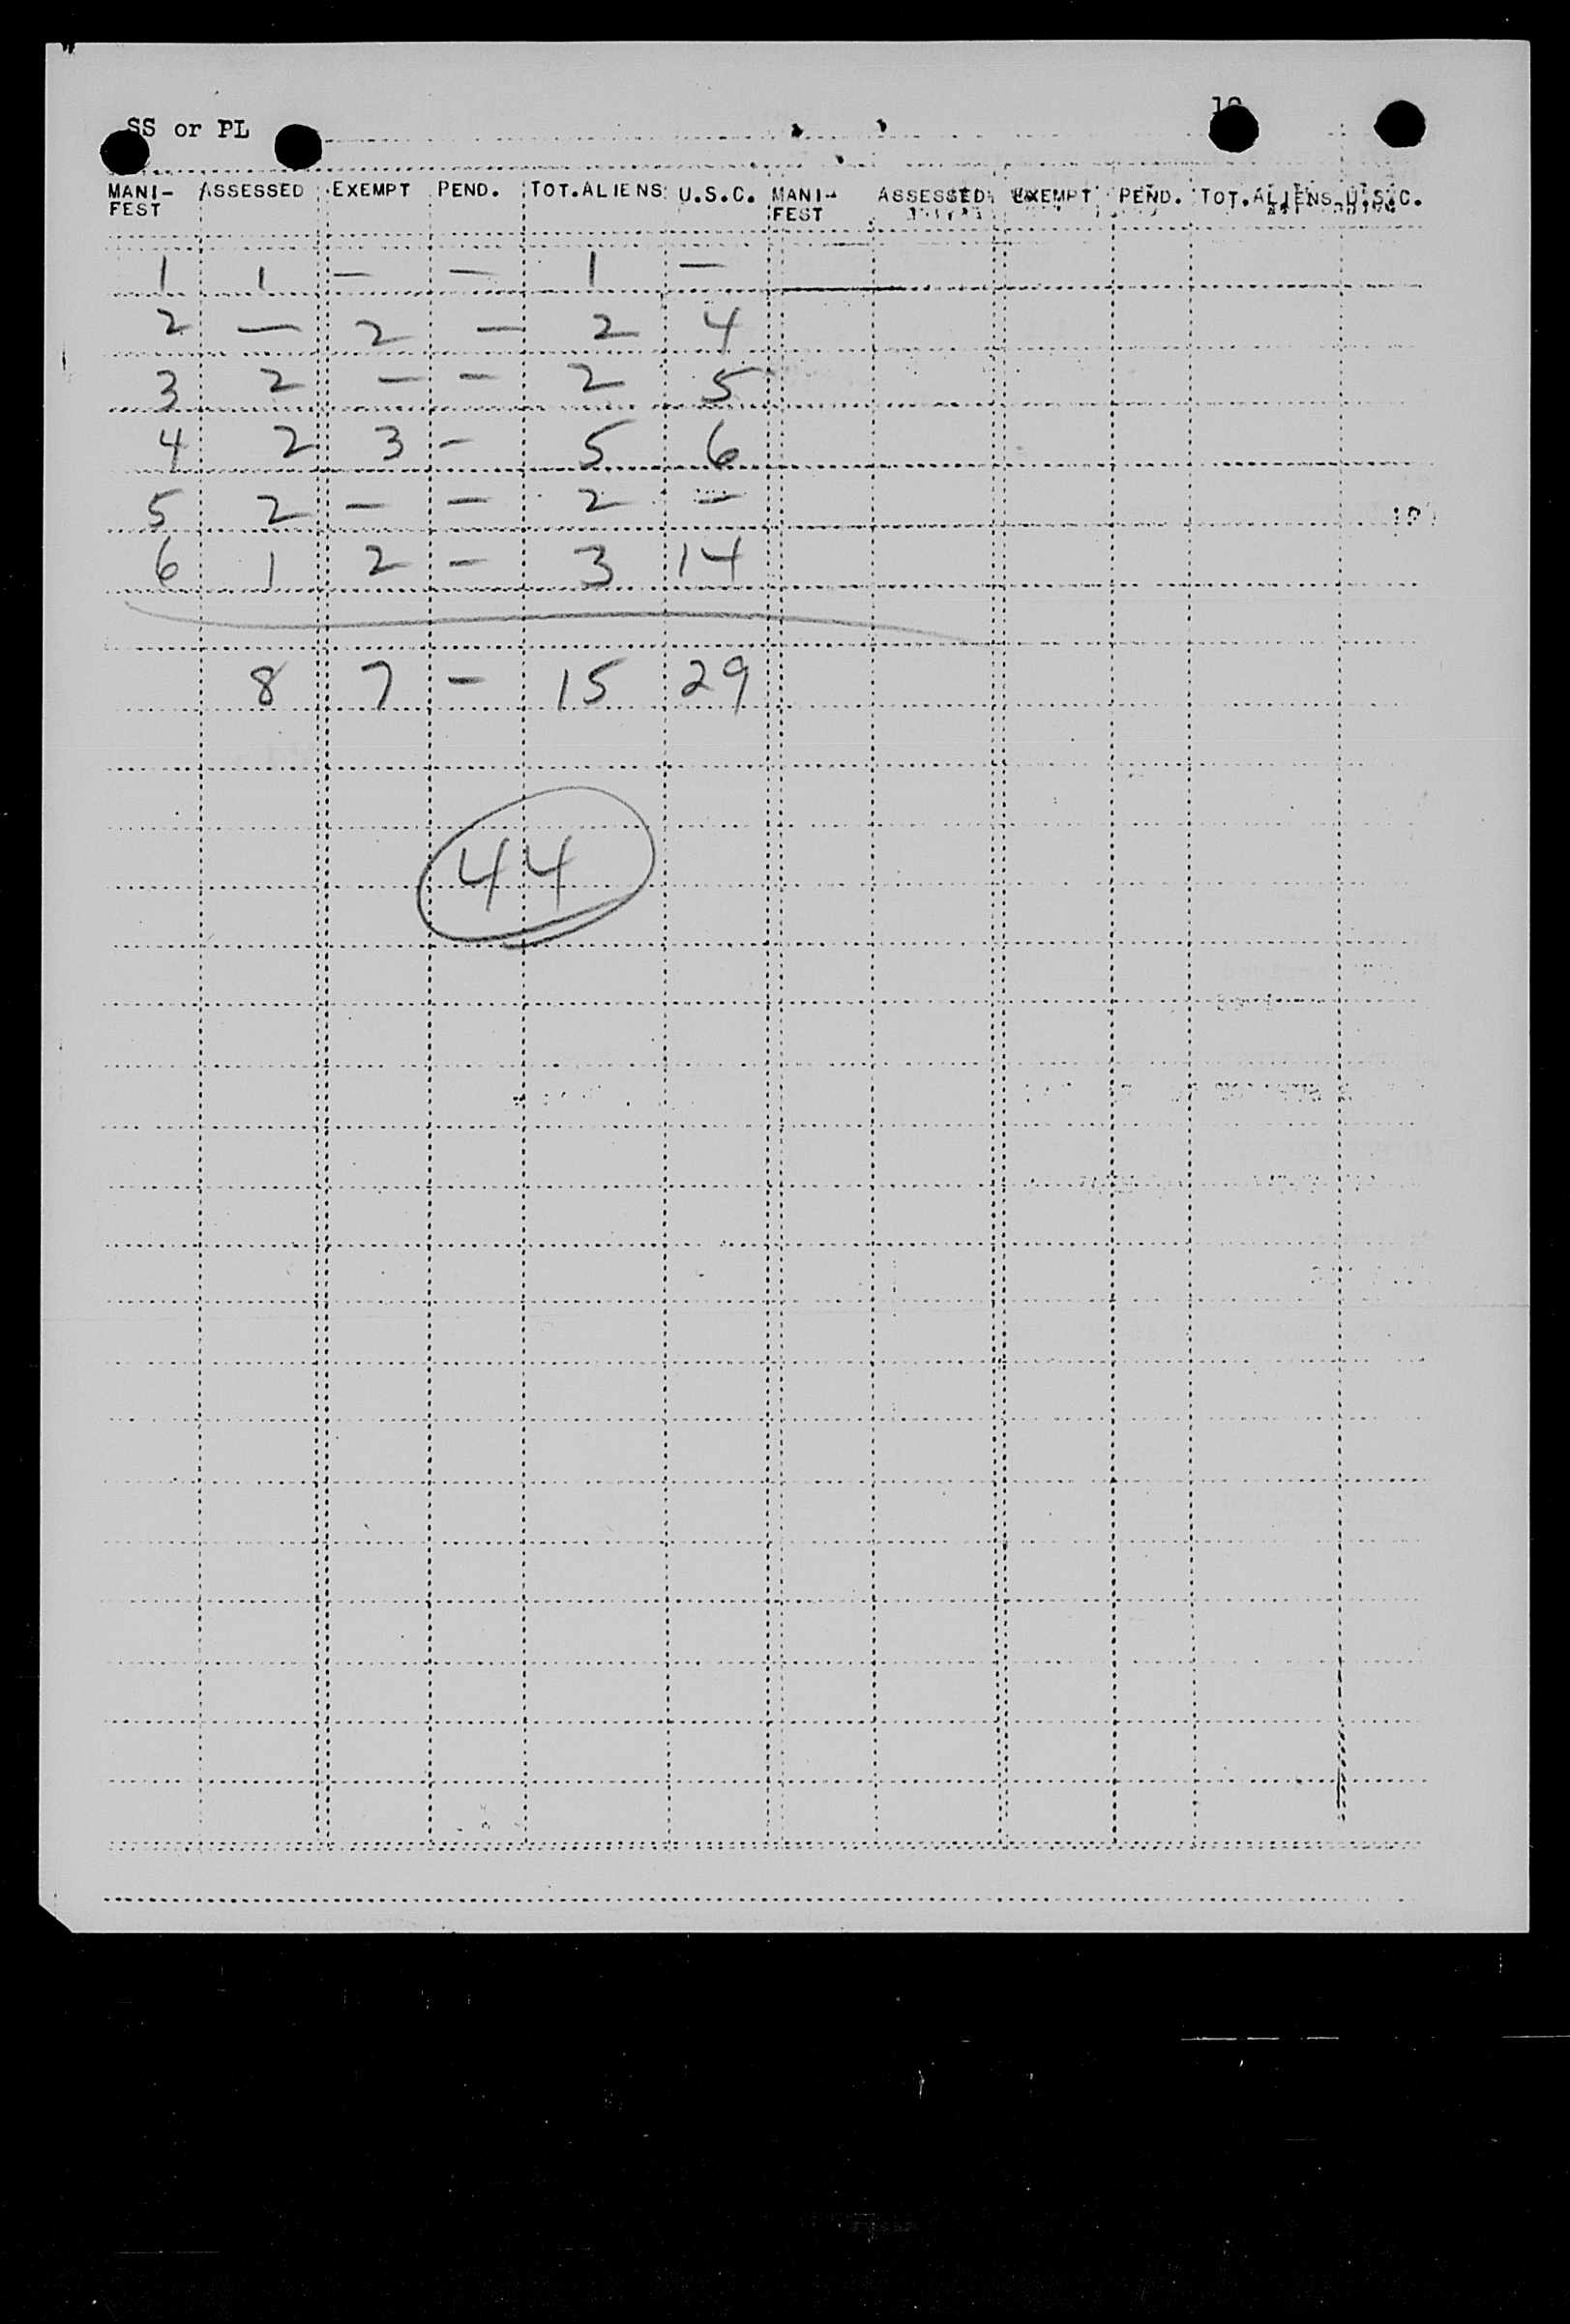 SS or PL
MANI-FEST ASSESSED EXEMPT PEND. TOT.ALIENS U.S.C. MANI-FEST ASSESSED EXEMPT PEND. TOT.ALIENS U.S.C.
1 1 - - 1 -
2 - 2 - 2 4
3 2 - - 2 5
4 2 3 - 5 6
5 2 - - 2 -
6 1 2 - 3 14
8 7 - 15 29
44